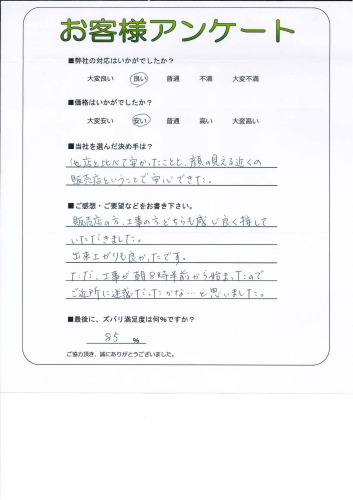 お客様アンケート
■弊社の対応はいかがでしたか?
大変良い 良い 普通 不満 大変不満
■価格はいかがでしたか?
大変安い 安い 普通 高い 大変高い
■当社を選んだ決め手は?
他店と比べて安かったことと、顔の見える近くの
販売店ということで安心できた。
■ご感想・ご要望などをお書き下さい。
販売店の方、工事の方どちらも感じ良く接して
いただきました。
出来上がりも良かったです。
ただ、工事が朝8時半前から始まったので
ご近所に迷惑だったかな…と思いました。
■最後に、ズバリ満足度は何%ですか?
85 %
ご協力頂き、誠にありがとうございました。